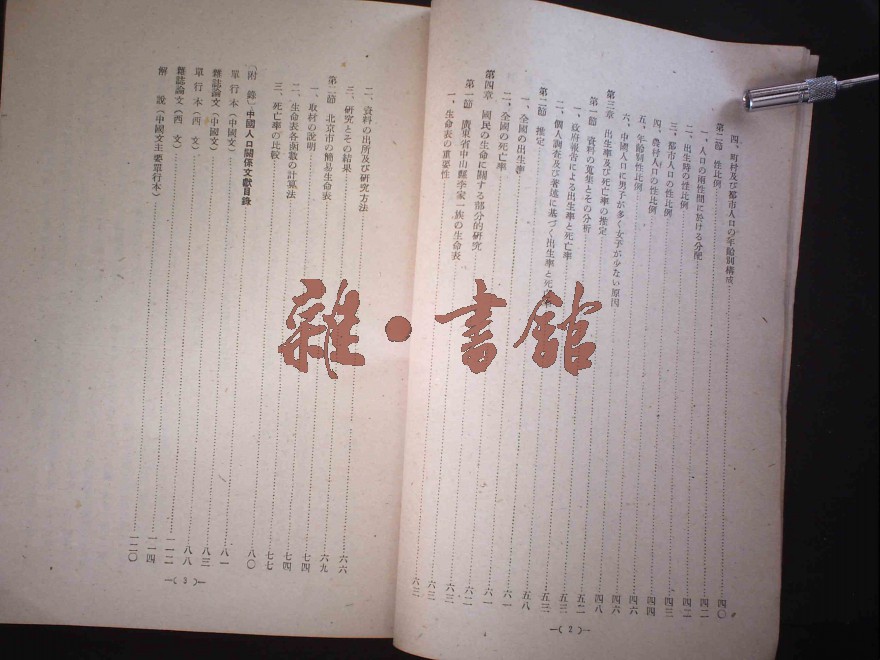 四、町村及び都市人口の年齡別構成 四〇
第二節 性比例 四二
一、人口の兩性間に於ける分配 四二
二、出生時の性比例 四三
三、都市人口の性比例 四四
四、農村人口の性比例 四六
五、年齡別性比例 四六
六、中國人口に男子が多く女子が少ない原因 四八
第三章 出生率及び死亡率の推定
第一節 資料の蒐集とその分析 五二
一、政府報告による出生率と死亡率 五三
二、個人調査及び著述に基づく出生率と死亡率 五三
第二節 推定 五八
一、全國の出生率 六一
二、全國の死亡率 六一
第四章 國民の生命に關する部分的研究 六二
第一節 廣東省中山縣李家一族の生命表 六三
一、生命表の重要性 六三
—( 2 )—
二、資料の出所及び研究方法 六六
三、研究とその結果 六九
第二節 北京市の簡易生命表 七四
一、取材の説明 七四
二、生命表各函數の計算法 七七
三、死亡率の比較
〔附 錄〕中國人口關係文獻目錄 八〇
單行本(中國文) 八一
雜誌論文(中國文) 八三
單行本(西 文) 八八
雜誌論文(西 文) 一一二
解 説(中國文主要單行本) 一一四
一二〇
—( 3 )—
雜·書館